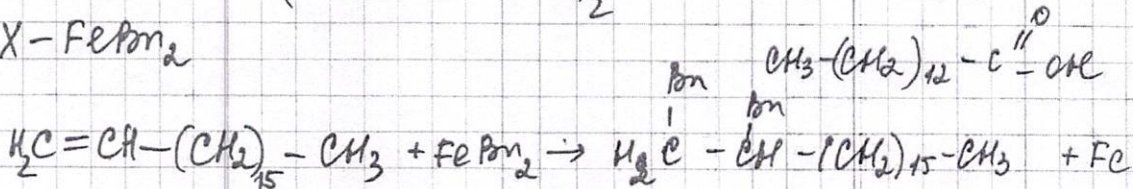 2
X – FeBr₂
CH₃-(CH₂)₁₂ - C - OH
O
Br
Br
H₂C = CH – (CH₂)₁₅ – CH₃ + FeBr₂ → H₂C – CH – (CH₂)₁₅ – CH₃ + Fe